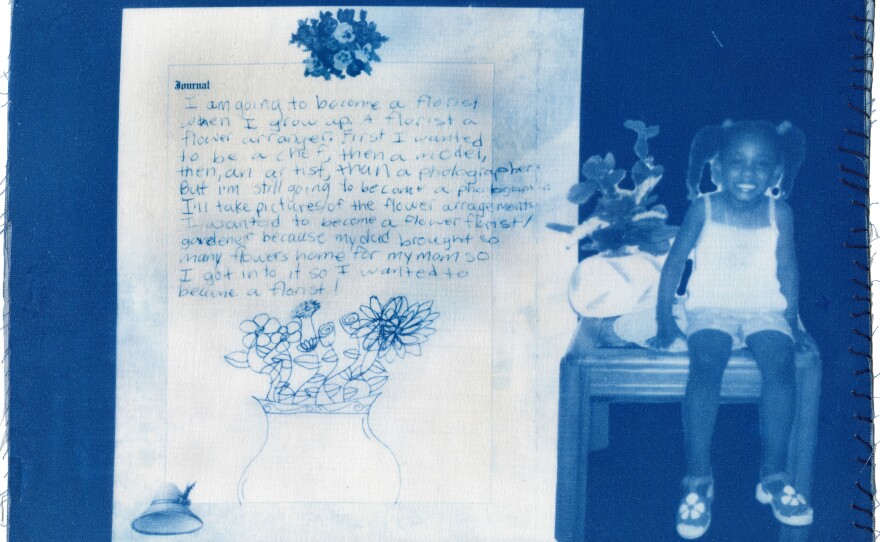 Journal
I am going to become a florist
when I grow up. A florist a
flower arranger. First I wanted
to be a chef, then a model,
then, an artist, than a photographer.
But i'm still going to become a
I'll take pictures of the flower arrangements
I wanted to become a flower florist/
gardener because my dad brought so
many flowers home for my mom so
I got into it so I wanted to
became a florist!